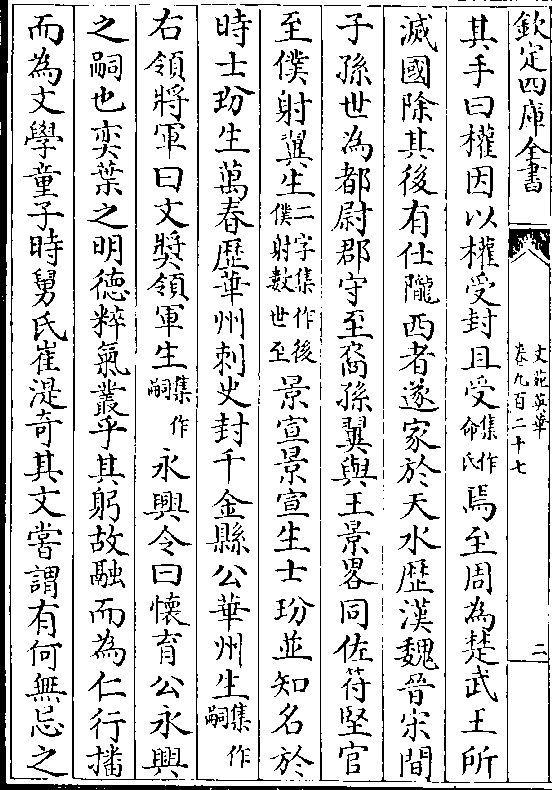 欽定四庫全書
文苑英華
卷九百二十七
二
其手曰權因以權受封且受集作命氏焉至周為楚武王所
滅國除其後有仕隴西者遂家於天水歴漢魏晉宋間
子孫世為都尉郡守至裔孫翼與王景畧同佐苻堅官
至僕射翼生二字集作後僕射數世至景宣景宣生士玢並知名於
時士玢生萬春歴華州刺史封千金縣公華州生集作嗣
右領將軍曰文奬領軍生集作嗣永興令曰懐育公永興
之嗣也奕葉之明徳粹氣叢乎其躬故融而為仁行播
而為文學童子時舅氏崔湜奇其文嘗謂有何無忌之